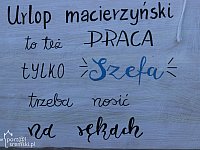 Urlop macierzyński
to też PRACA
TYLKO Szefa
trzeba nosić
na rękach